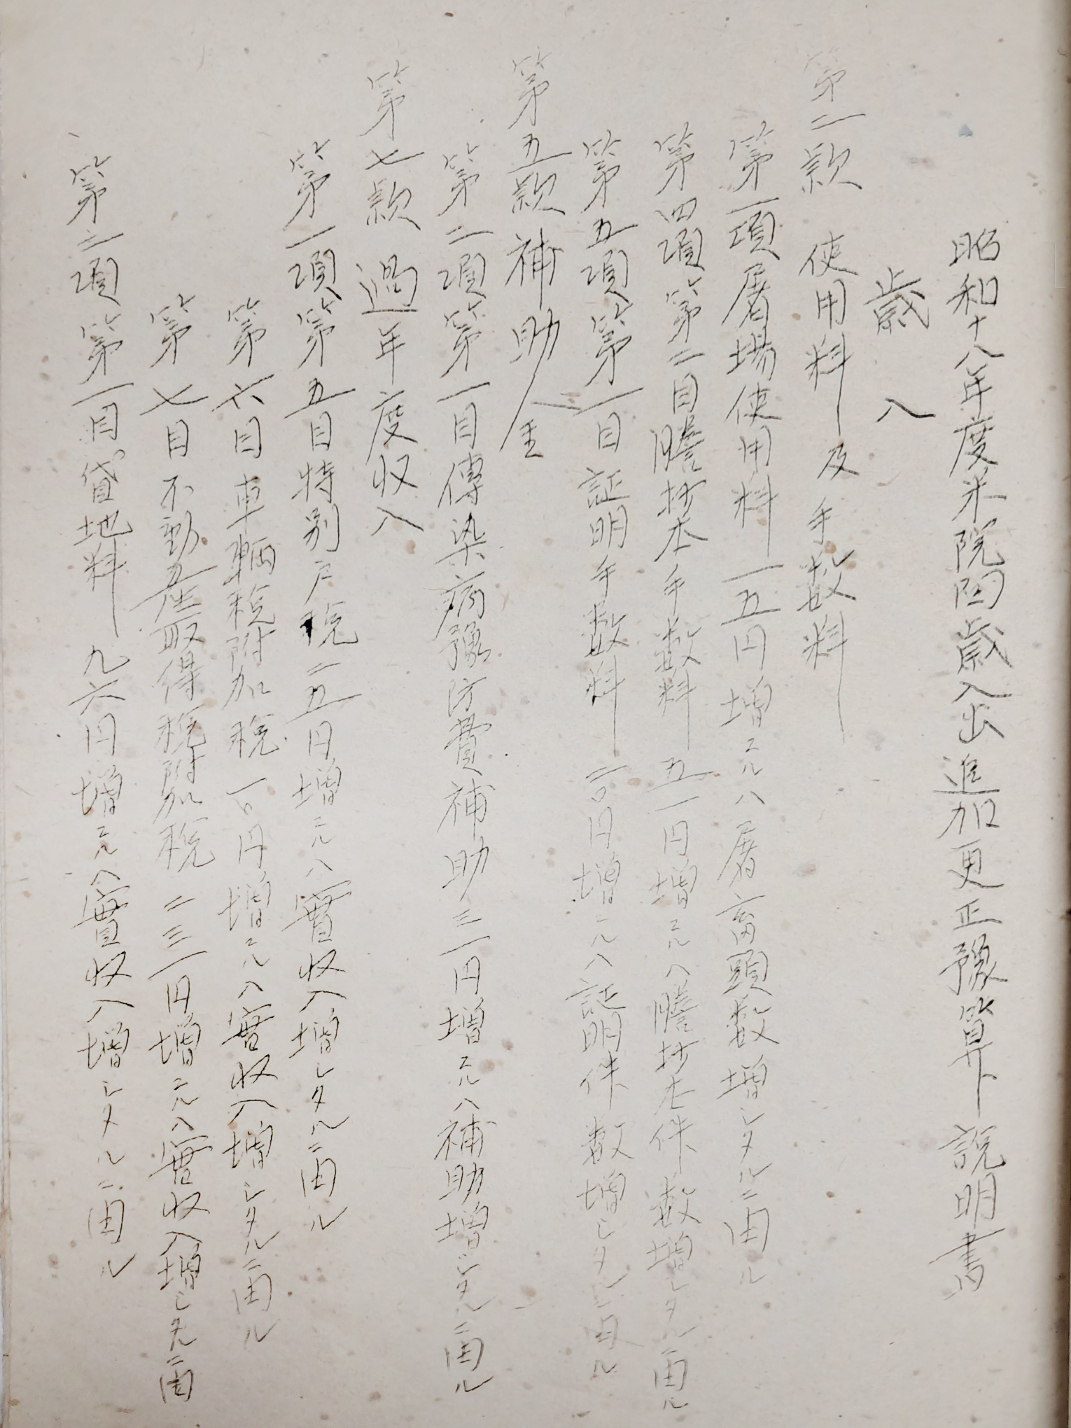 昭和十八年度米院囬歳入出追加更正豫算説明書
歳入
第二款 使用料及手数料
第一項屠場使用料一五円増元ハ屠畜頭数増シタルニ由ル
第四項第二目謄抄本手数料五一円増元ハ謄抄本件数増シタルニ由ル
第五項第一目証明手数料 一〇円増元ハ証明件数増シタルニ由ル
第五款 補助金
第二項第一目傳染病豫防費補助三一円増元ハ補助増シタルニ由ル
第七款 過年度収入
第一項第五目特別戸税二五円増元ハ實収入増シタルニ由ル
第六目車輌税附加税一〇円増元ハ實収入増シタルニ由ル
第七目不動産取得税附加税二三一円増元ハ實収入増シタルニ由
第二項第一目貸地料 九六円増元ハ實収入増シタルニ由ル